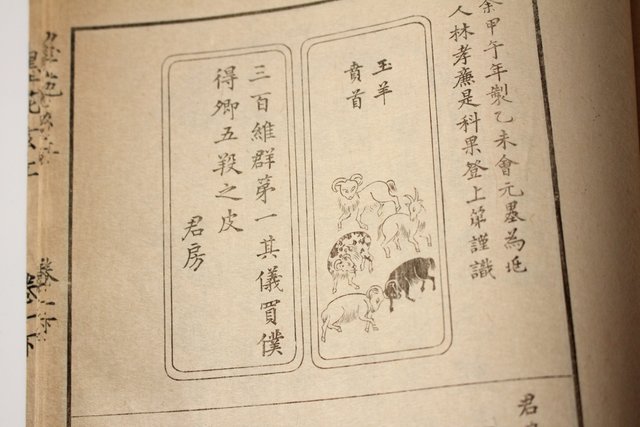 余甲午年製乙未會元墨為
人林孝廉是科果登上第謹識
玉羊
賁首
三百維群第一其儀買僕
得卿五羖之皮
君房
君